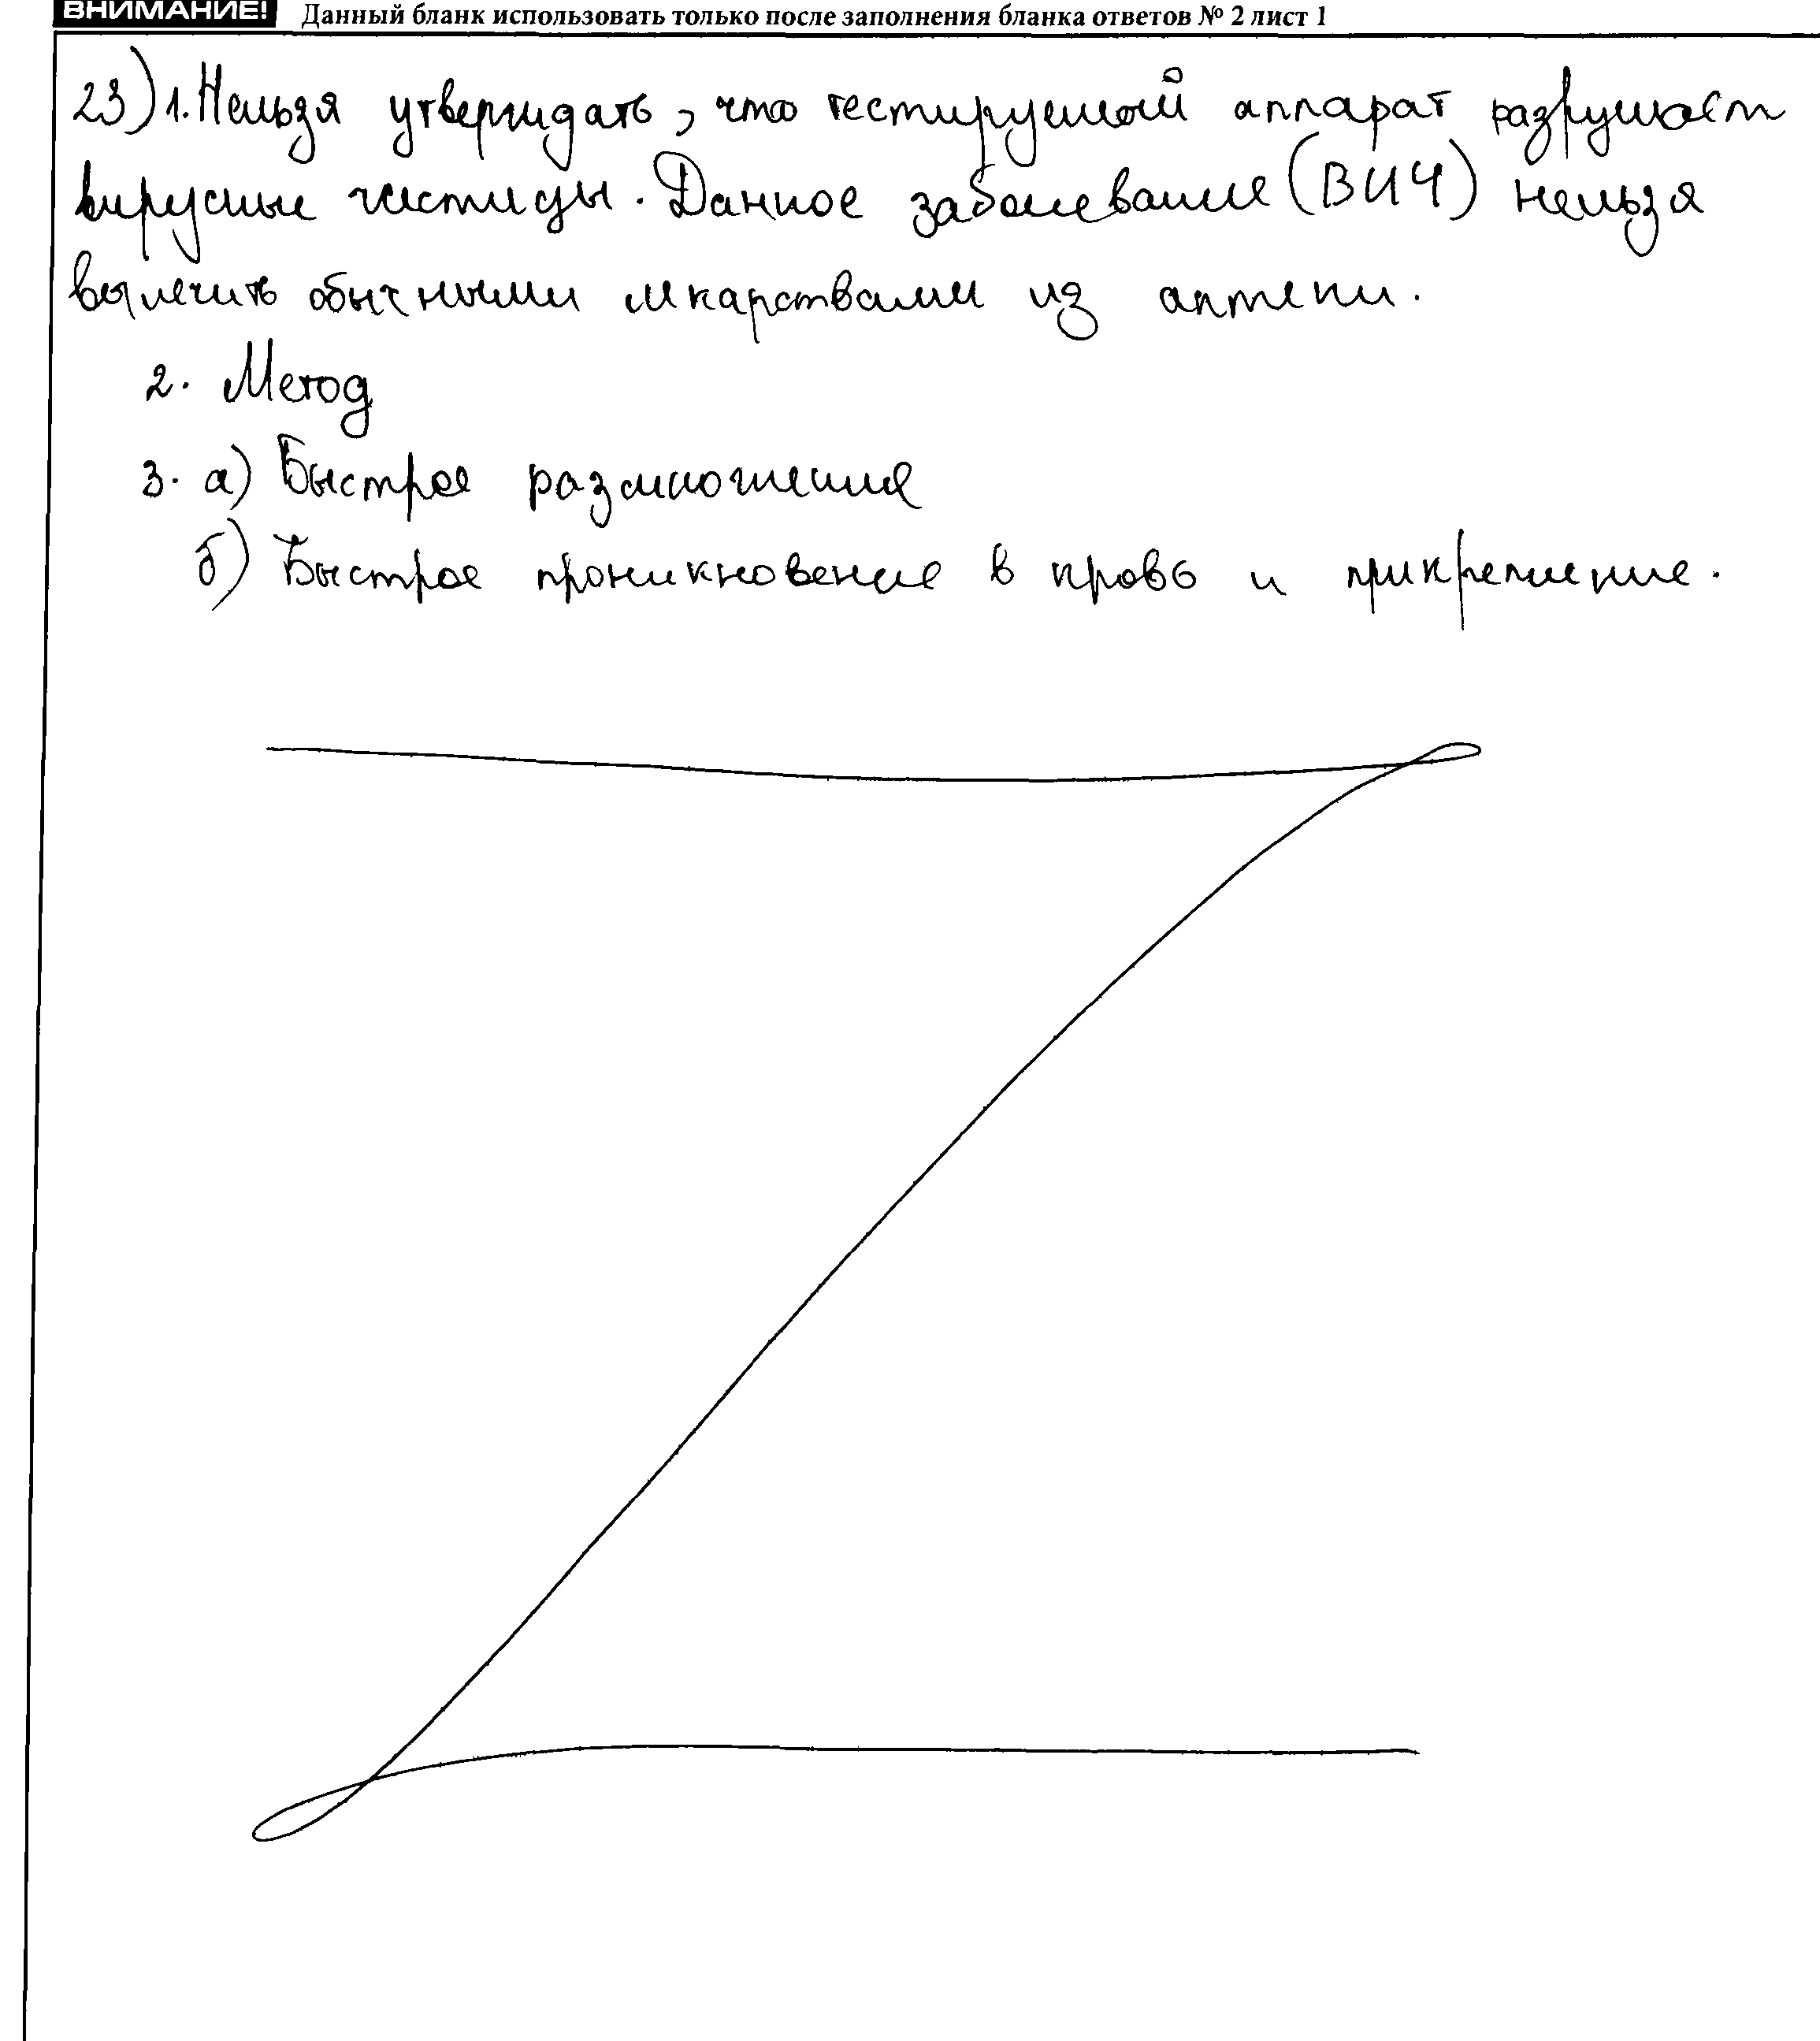 ВНИМАНИЕ! Данный бланк использовать только после заполнения бланка ответов № 2 лист 1
23) 1. Нельзя утверждать, что тестируемый аппарат разрушает
вирусные частицы. Данное заболевание (ВИЧ) нельзя
вылечить обычными лекарствами из аптеки.
2. Метод
3. а) Быстрое размножение
б) Быстрое проникновение в кровь и прикрепление.